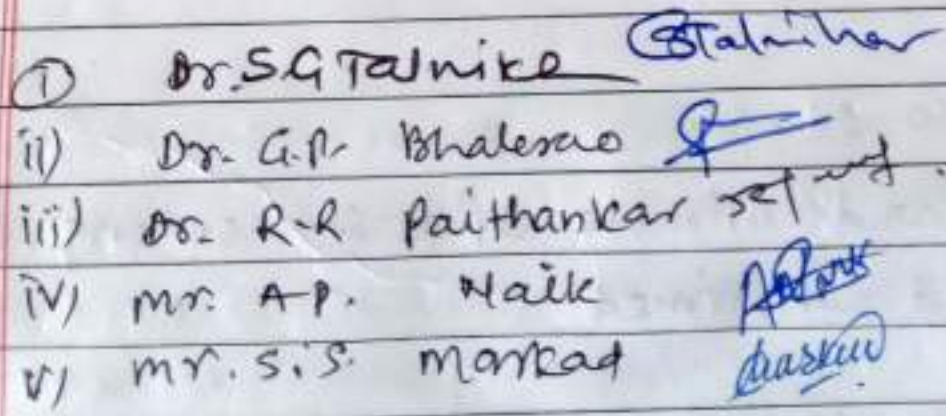 ① Dr. S.G Talnike GTalnikar
ii) Dr. G.P. Bhalerao
iii) Dr. R-R Paithankar
iv) Mr. A-P. Naik
v) Mr. S.S. Markad